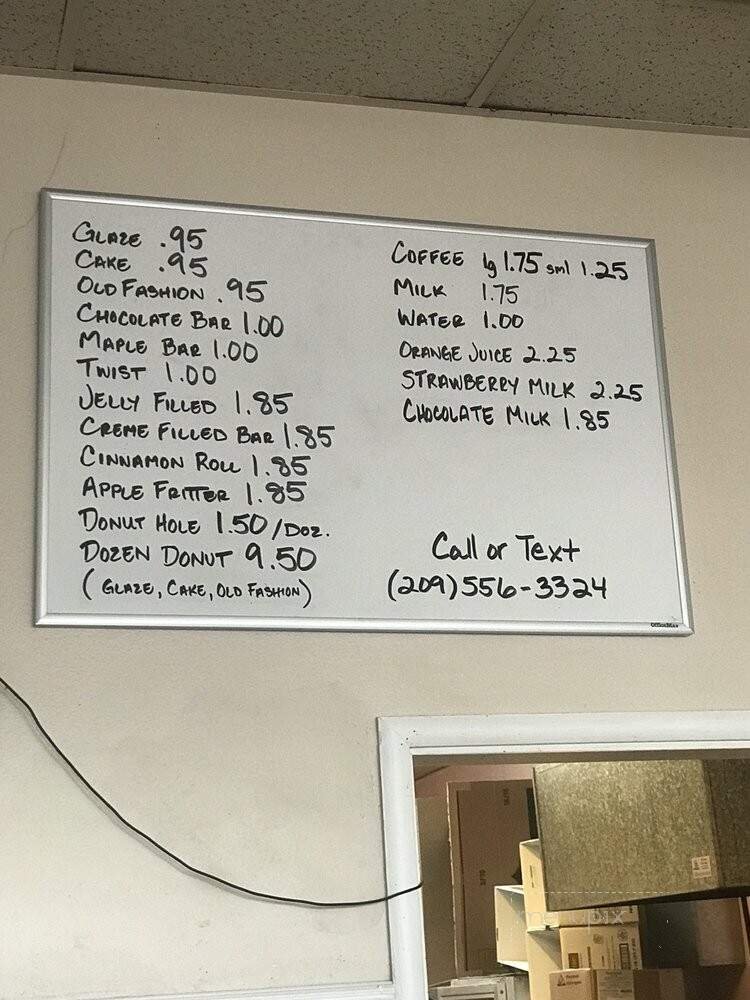 GLAZE .95
CAKE .95
OLD FASHION .95
CHOCOLATE BAR 1.00
MAPLE BAR 1.00
TWIST 1.00
JELLY FILLED 1.85
CREME FILLED BAR 1.85
CINNAMON ROLL 1.85
APPLE FRITTER 1.85
DONUT HOLE 1.50/DOZ.
DOZEN DONUT 9.50
(GLAZE, CAKE, OLD FASHION)
COFFEE lg 1.75 sml 1.25
MILK 1.75
WATER 1.00
ORANGE JUICE 2.25
STRAWBERRY MILK 2.25
CHOCOLATE MILK 1.85
Call or Text
(209)556-3324
OfficeMax
menupix